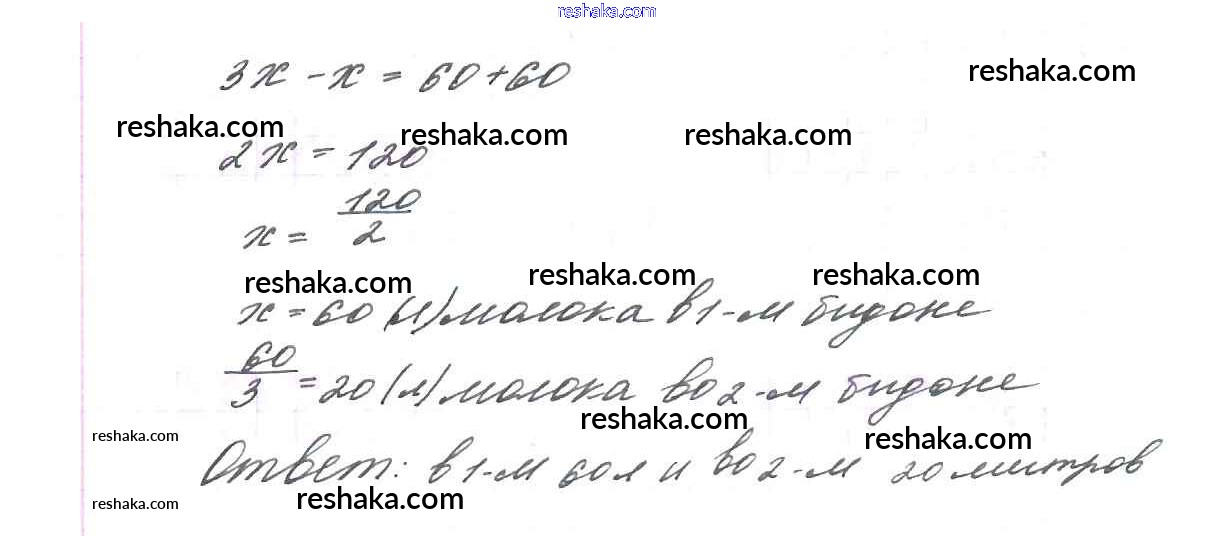 reshaka.com
3x - x = 60 + 60
reshaka.com
reshaka.com reshaka.com reshaka.com
2x = 120
x = 120/2
reshaka.com reshaka.com reshaka.com
x = 60 (л) молока в 1-м бидоне
60/3 = 20 (л) молока во 2-м бидоне
reshaka.com
reshaka.com reshaka.com
Ответ: в 1-м 60 л и во 2-м 20 литров
reshaka.com reshaka.com